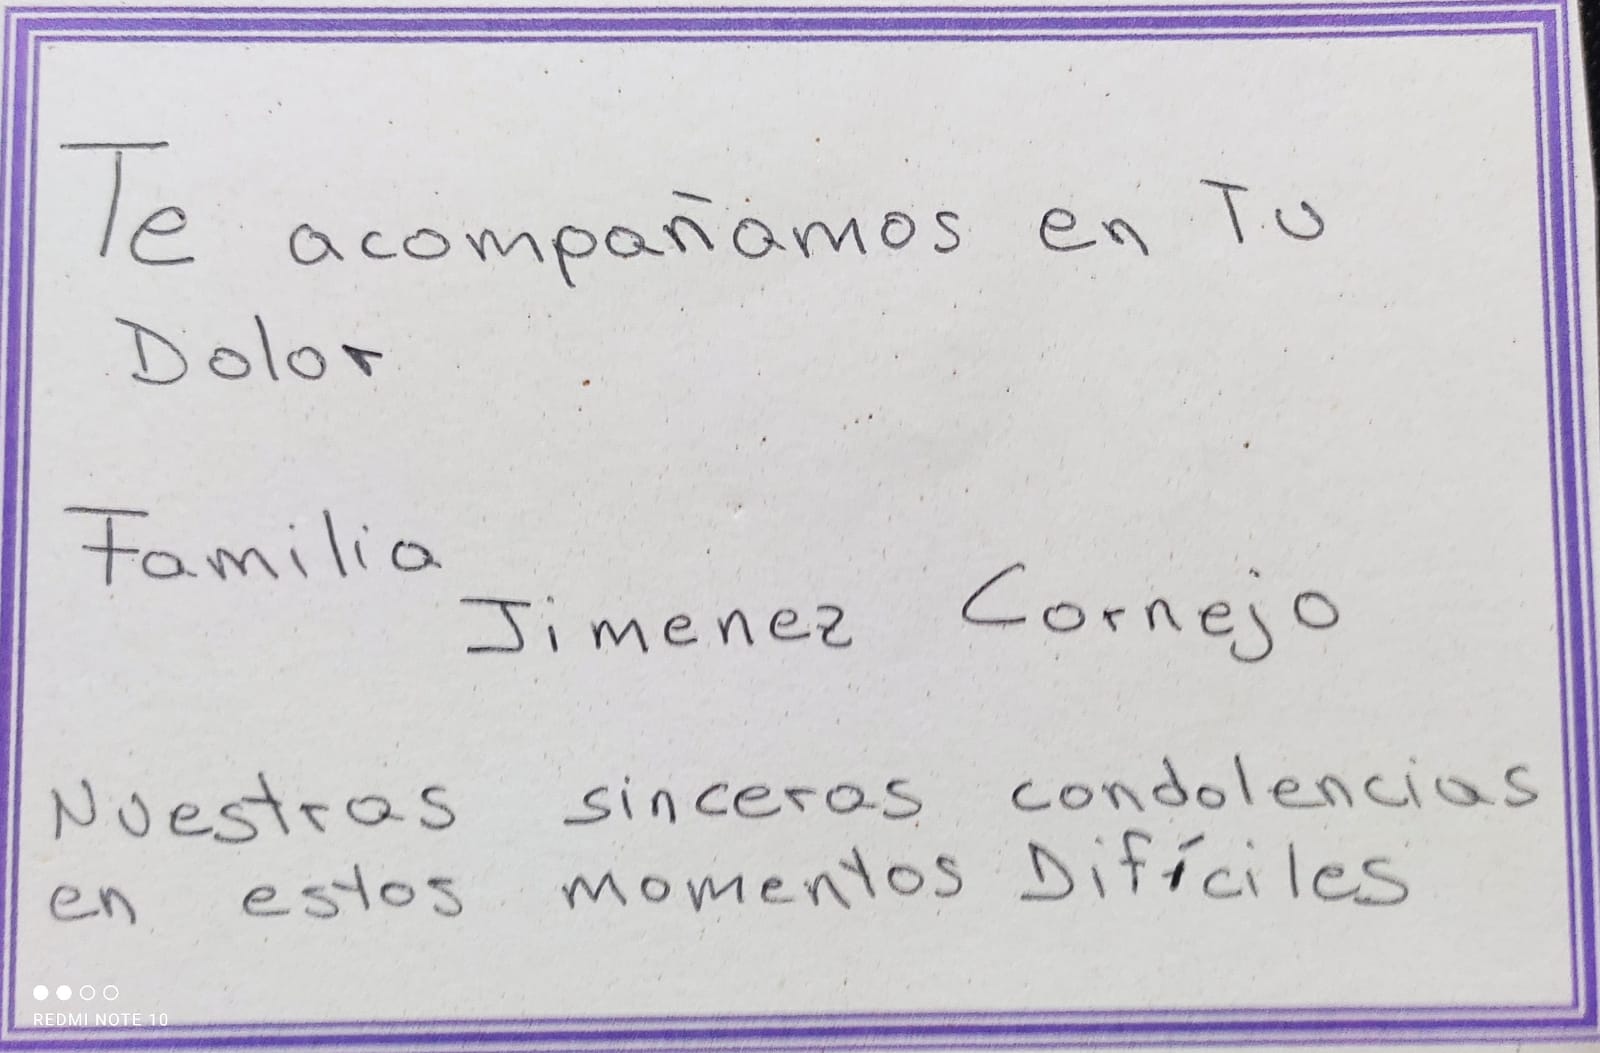 Te acompañamos en Tu
Dolor
Familia
Jimenez Cornejo
Nuestras sinceras condolencias
en estos momentos Difíciles
REDMI NOTE 10